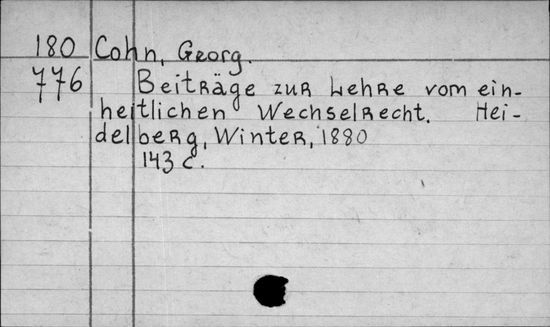 180 Cohn, Georg.
776 Beiträge zur Lehre vom ein-
heitlichen Wechselrecht. Hei-
delberg, Winter, 1880
143 c.